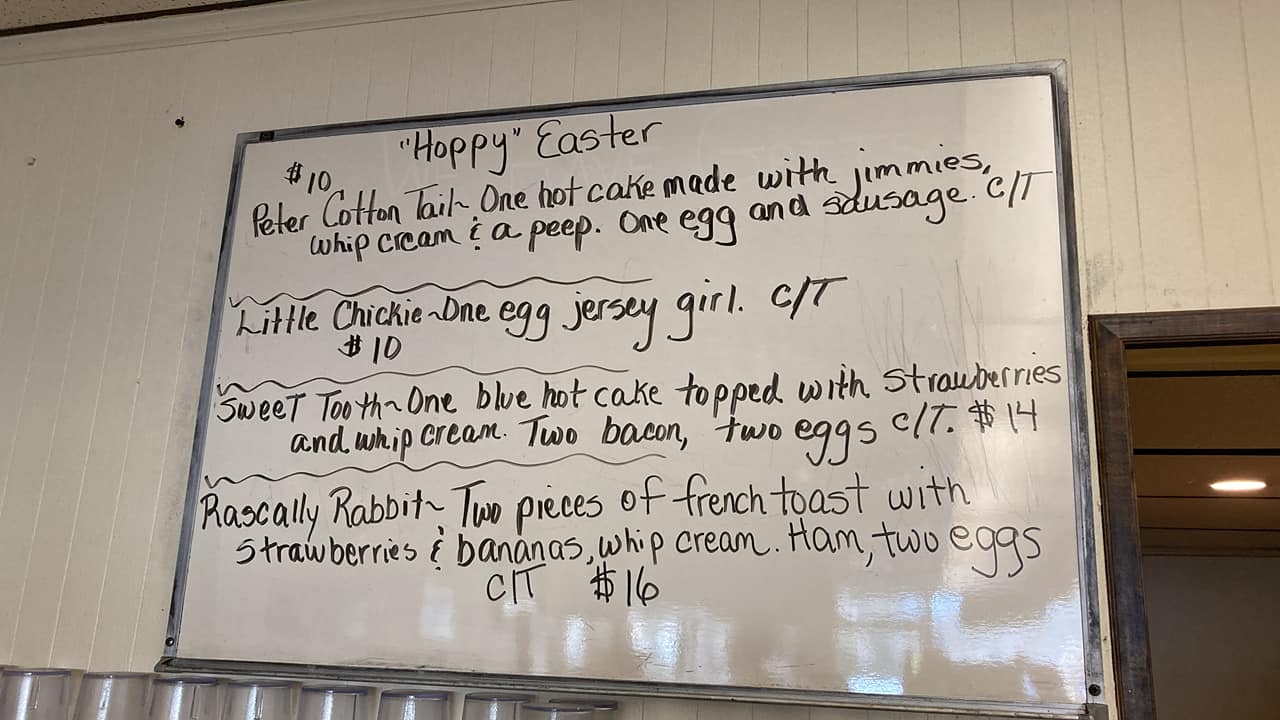 "Hoppy" Easter
$10
Peter Cotton Tail~ One hot cake made with jimmies,
whip cream & a peep. One egg and sausage. C/T
Little Chickie~One egg jersey girl. C/T
$10
Sweet Tooth~One blue hot cake topped with strawberries
and whip cream. Two bacon, two eggs C/T. $14
Rascally Rabbit~ Two pieces of french toast with
strawberries & bananas, whip cream. Ham, two eggs
C/T $16